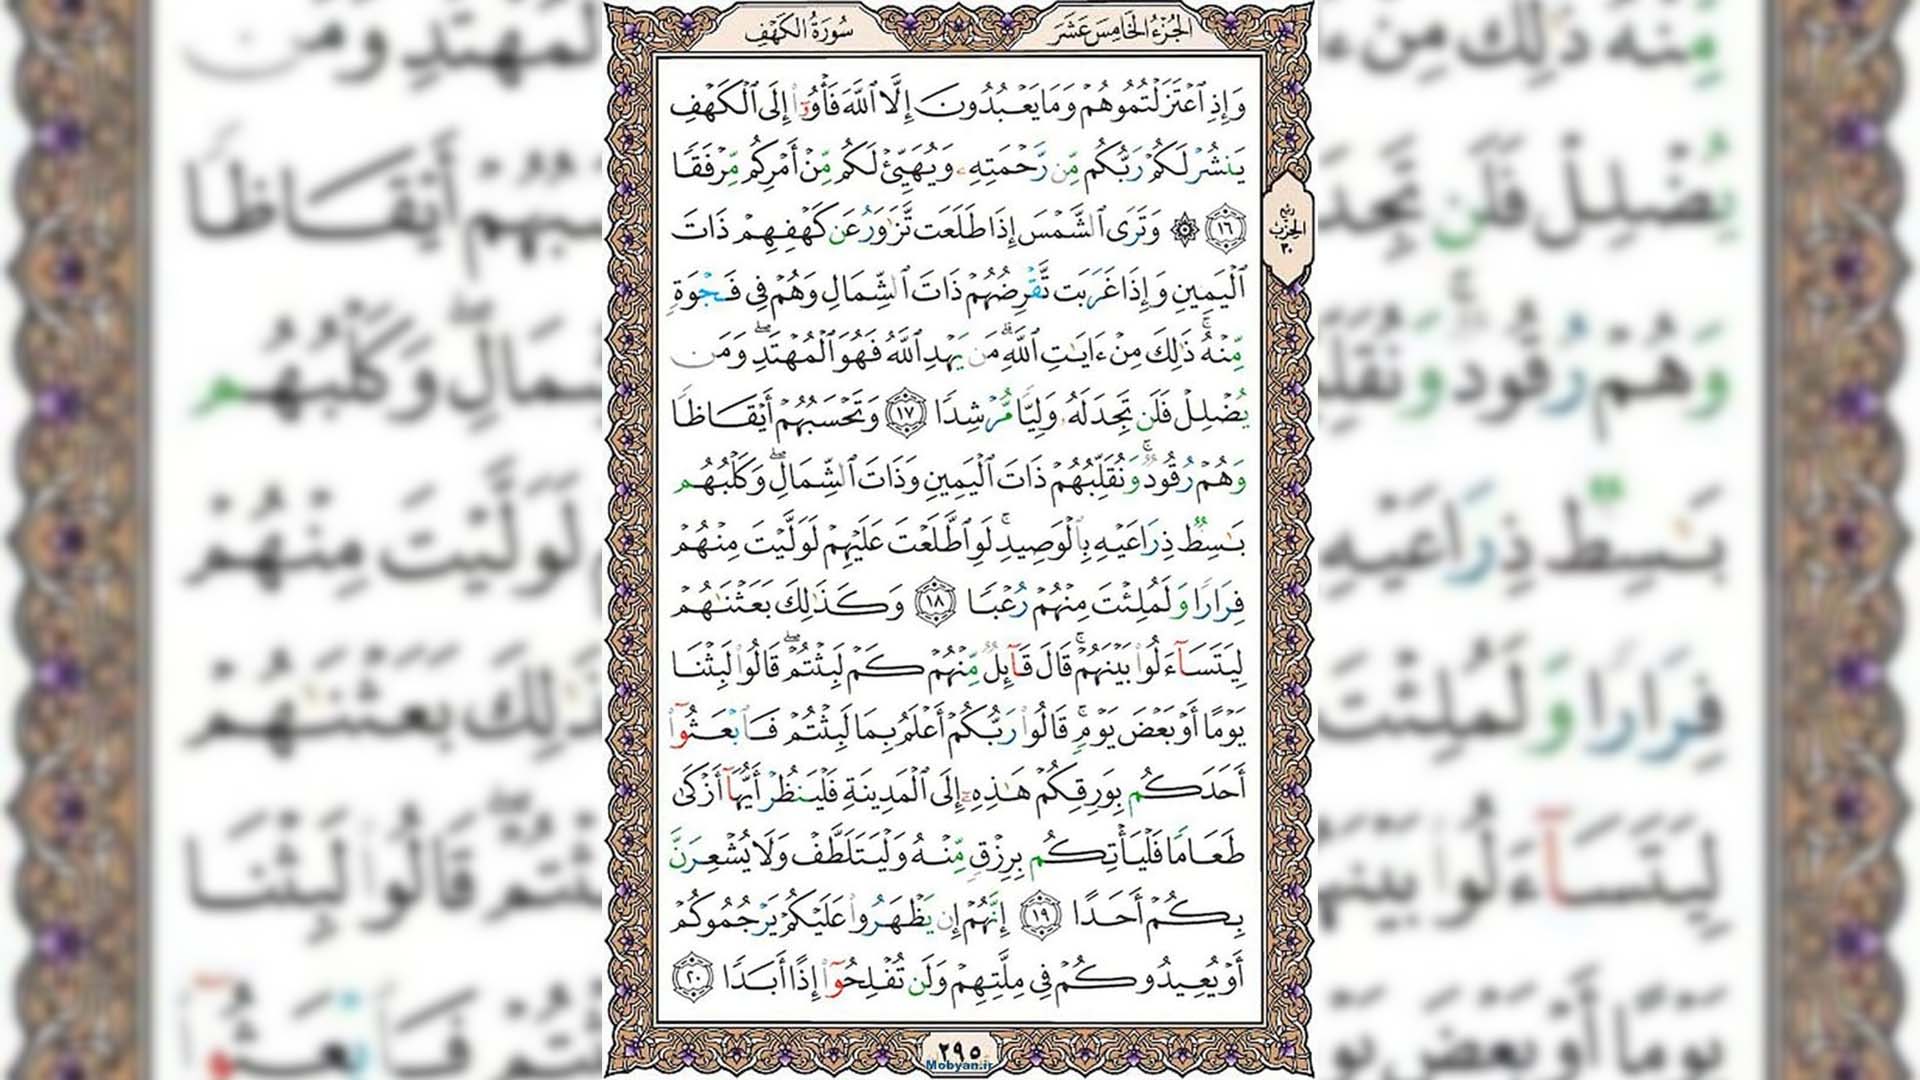 الجُزْءُ الخَامِسَ عَشَرَ
سُورَةُ الكَهْفِ
وَإِذِ ٱعْتَزَلْتُمُوهُمْ وَمَا يَعْبُدُونَ إِلَّا ٱللَّهَ فَأْوُۥٓا۟ إِلَى ٱلْكَهْفِ
يَنشُرْ لَكُمْ رَبُّكُم مِّن رَّحْمَتِهِۦ وَيُهَيِّئْ لَكُم مِّنْ أَمْرِكُم مِّرْفَقًا
١٦ ۞ وَتَرَى ٱلشَّمْسَ إِذَا طَلَعَت تَّزَٰوَرُ عَن كَهْفِهِمْ ذَاتَ
ٱلْيَمِينِ وَإِذَا غَرَبَت تَّقْرِضُهُمْ ذَاتَ ٱلشِّمَالِ وَهُمْ فِى فَجْوَةٍ
مِّنْهُ ۚ ذَٰلِكَ مِنْ ءَايَٰتِ ٱللَّهِ ۗ مَن يَهْدِ ٱللَّهُ فَهُوَ ٱلْمُهْتَدِ ۖ وَمَن
يُضْلِلْ فَلَن تَجِدَ لَهُۥ وَلِيًّا مُّرْشِدًا ١٧ وَتَحْسَبُهُمْ أَيْقَاظًا
وَهُمْ رُقُودٌ ۚ وَنُقَلِّبُهُمْ ذَاتَ ٱلْيَمِينِ وَذَاتَ ٱلشِّمَالِ ۖ وَكَلْبُهُم
بَٰسِطٌ ذِرَاعَيْهِ بِٱلْوَصِيدِ ۚ لَوِ ٱطَّلَعْتَ عَلَيْهِمْ لَوَلَّيْتَ مِنْهُمْ
فِرَارًا وَلَمُلِئْتَ مِنْهُمْ رُعْبًا ١٨ وَكَذَٰلِكَ بَعَثْنَٰهُمْ
لِيَتَسَآءَلُوا۟ بَيْنَهُمْ ۚ قَالَ قَآئِلٌ مِّنْهُمْ كَمْ لَبِثْتُمْ ۖ قَالُوا۟ لَبِثْنَا
يَوْمًا أَوْ بَعْضَ يَوْمٍ ۚ قَالُوا۟ رَبُّكُمْ أَعْلَمُ بِمَا لَبِثْتُمْ فَٱبْعَثُوٓا۟
أَحَدَكُم بِوَرِقِكُمْ هَٰذِهِۦٓ إِلَى ٱلْمَدِينَةِ فَلْيَنظُرْ أَيُّهَآ أَزْكَىٰ
طَعَامًا فَلْيَأْتِكُم بِرِزْقٍ مِّنْهُ وَلْيَتَلَطَّفْ وَلَا يُشْعِرَنَّ
بِكُمْ أَحَدًا ١٩ إِنَّهُمْ إِن يَظْهَرُوا۟ عَلَيْكُمْ يَرْجُمُوكُمْ
أَوْ يُعِيدُوكُمْ فِى مِلَّتِهِمْ وَلَن تُفْلِحُوٓا۟ إِذًا أَبَدًا ٢٠
رُبع
الحِزْب
٣٠
٢٩٥
Mobyan.ir